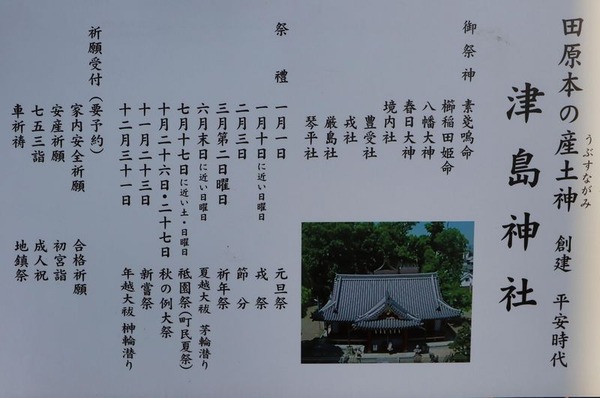 田原本の産土神 創建 平安時代
うぶすながみ
津島神社
御祭神 素戔嗚命
櫛稲田姫命
八幡大神
春日大神
境内社
豊受社
戎社
厳島社
琴平社
祭禮 一月一日 元旦祭
一月十日に近い日曜日 戎祭
二月三日 節分
三月第二日曜日 祈年祭
六月末日に近い日曜日 夏越大祓 茅輪潜り
七月十七日に近い土・日曜日 祗園祭(町民夏祭)
十月二十六日・二十七日 秋の例大祭
十一月二十三日 新嘗祭
十二月三十一日 年越大祓 榊輪潜り
祈願受付(要予約)
家内安全祈願 合格祈願
安産祈願 初宮詣
七五三詣 成人祝
車祈祷 地鎮祭